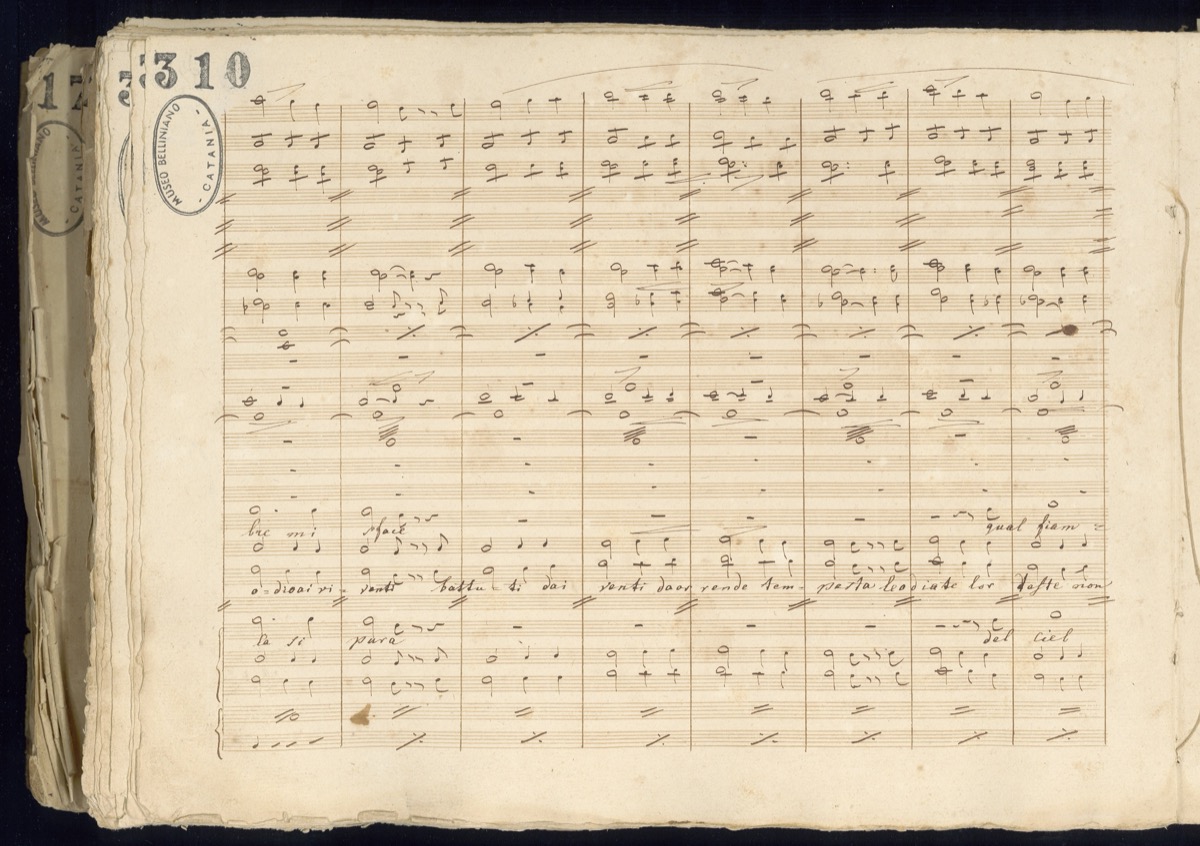 310
MUSEO BELLINIANO
- CATANIA -
bre mi sface qual fiam =
venti battu - ti dai venti daor rende tem - pesta le odiate lor
la si pura dal ciel